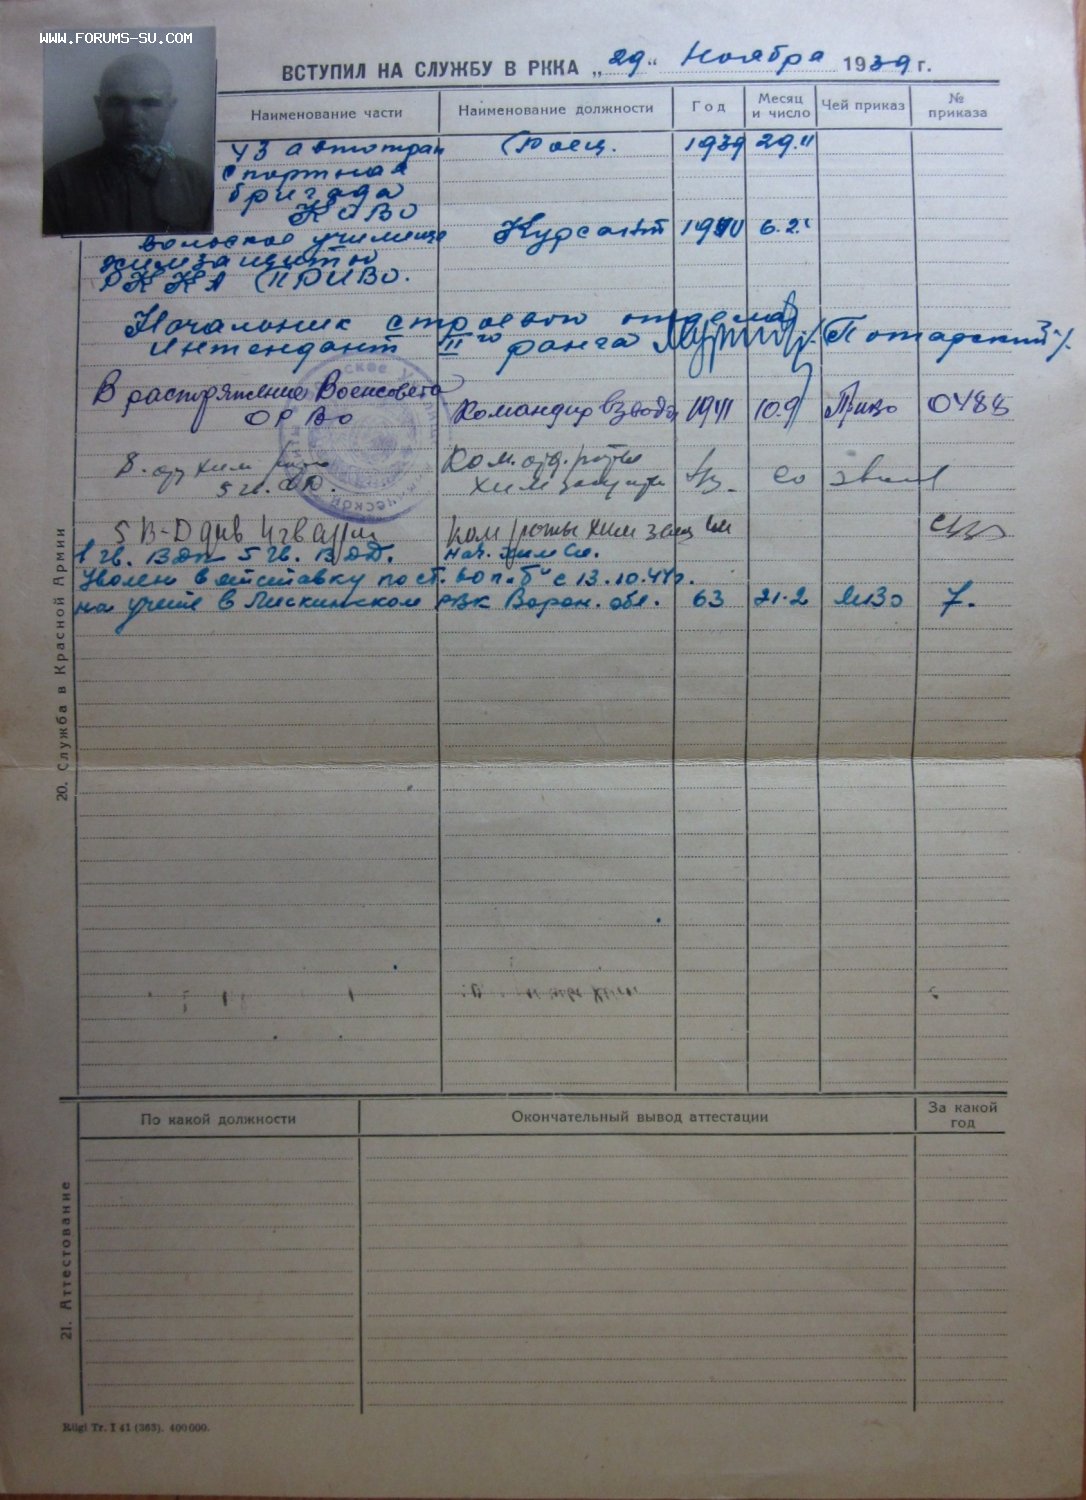 WWW.FORUMS-SU.COM
ВСТУПИЛ НА СЛУЖБУ В РККА „29“ Ноября 1939 г.
Наименование части Наименование должности Год Месяц и число Чей приказ № приказа
43 автотран Боец. 1939 29.11
спортная
бригада
КОВО
Вольское училище Курсант 1940 6.2.
химзащиты
РККА (ПРИВО.
Начальник строевого отдела
Интендант II го ранга
В распоряжение Военсовета
ОРВО Командир взвода 1941 10.9 0488
8. хим Ком. отд. роты
5 гв. химзащиты
5 В-Д див 4 гв арм Ком роты хим защ
1 гв. ВДП 5 гв. ВДД. нач. хим сл.
Уволен в отставку по ст. 60 п. „Б“ с 13.10.47г.
на учете в Лискинском РВК Ворон. обл. 63 21.2 7.
20. Служба в Красной Армии
По какой должности Окончательный вывод аттестации За какой год
21. Аттестование
Riigi Tr. I 41 (363). 400 000.